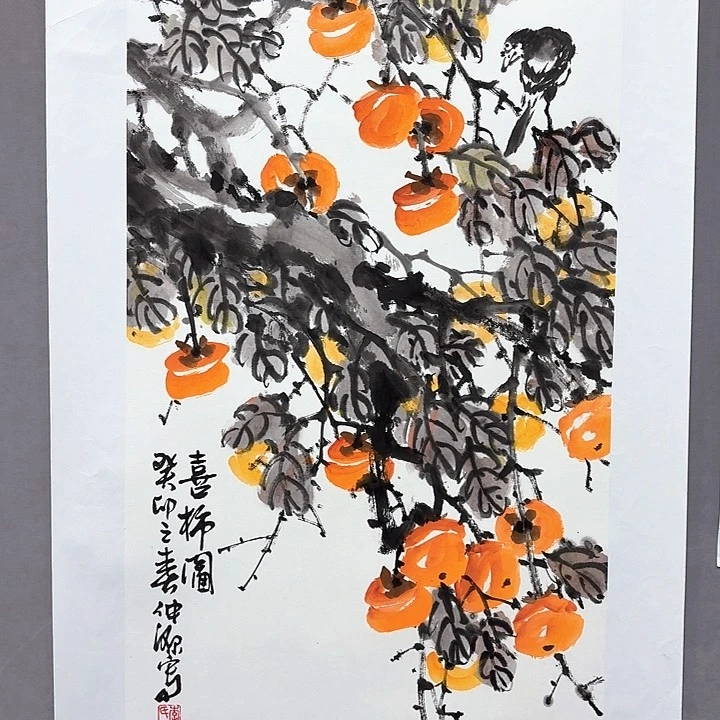 喜柿圖
癸卯之春仲
寫